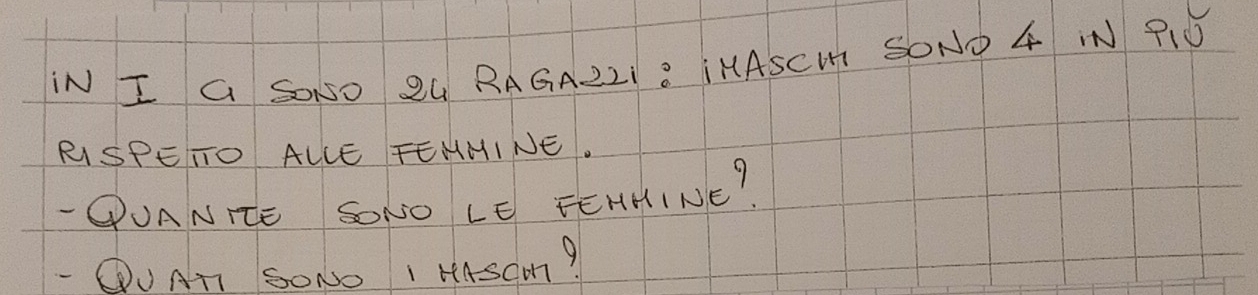 IN I G SONO 24 RAGAZZI: I MASCHI SONO 4 IN PIÙ
RISPETTO ALLE FEMMINE.
- QUANTE SONO LE FEMMINE?
- QUATI SONO I MASCHI?